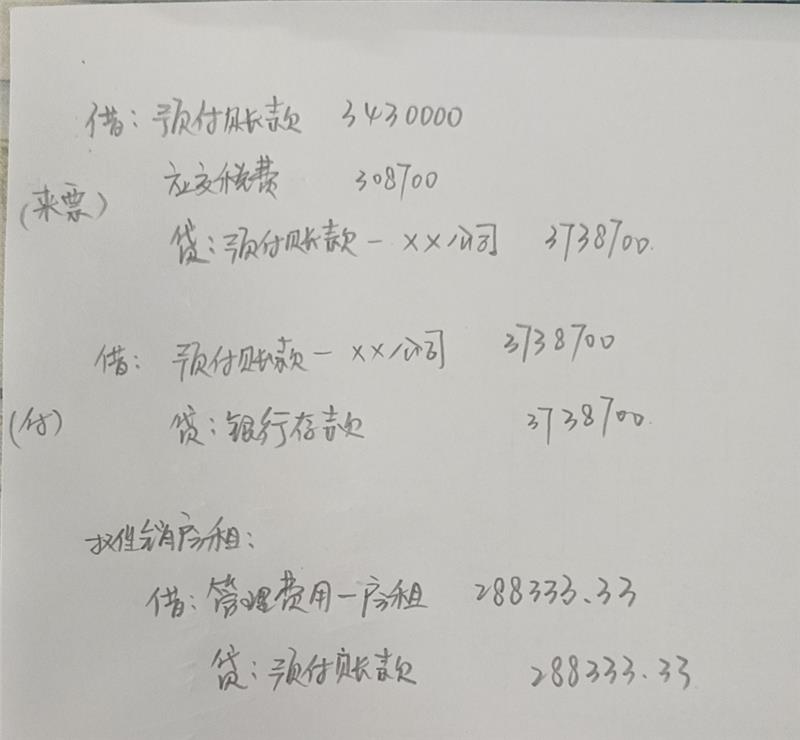 借：预付账款 3430000
应交税费 308700
(来票)
贷：预付账款－××公司 3738700.
借：预付账款－××公司 3738700
(付)
贷：银行存款 3738700.
摊销房租：
借：管理费用－房租 288333.33
贷：预付账款 288333.33